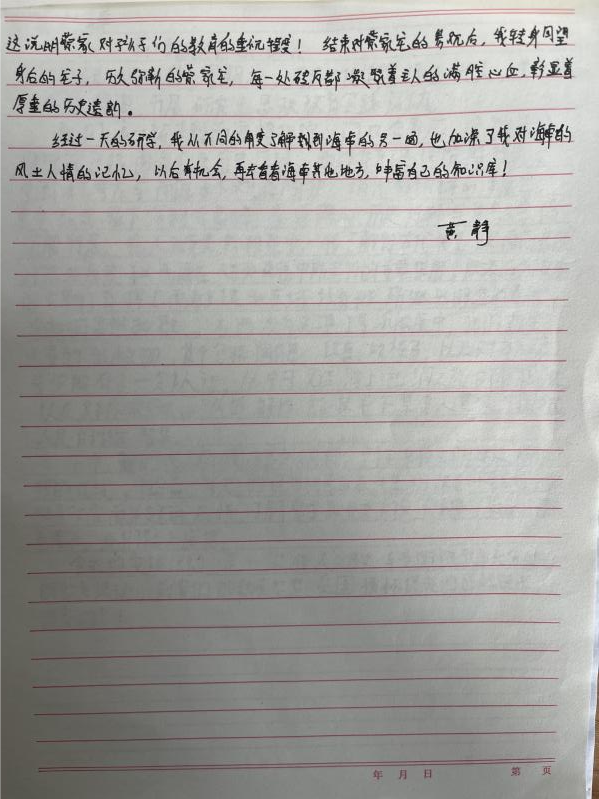 这说明蔡家对孩子们的教育的重视程度！结束对蔡家宅的参观后，我转身回望
身后的宅子，历久弥新的蔡家宅，每一处砖瓦都凝聚着主人的满腔心血，彰显着
厚重的历史遗韵。
经过一天的研学，我从不同的角度了解到海南的另一面，也加深了我对海南的
风土人情的记忆，以后有机会，再去看看海南其他地方，丰富自己的知识库！
黄静
年 月 日 第 页